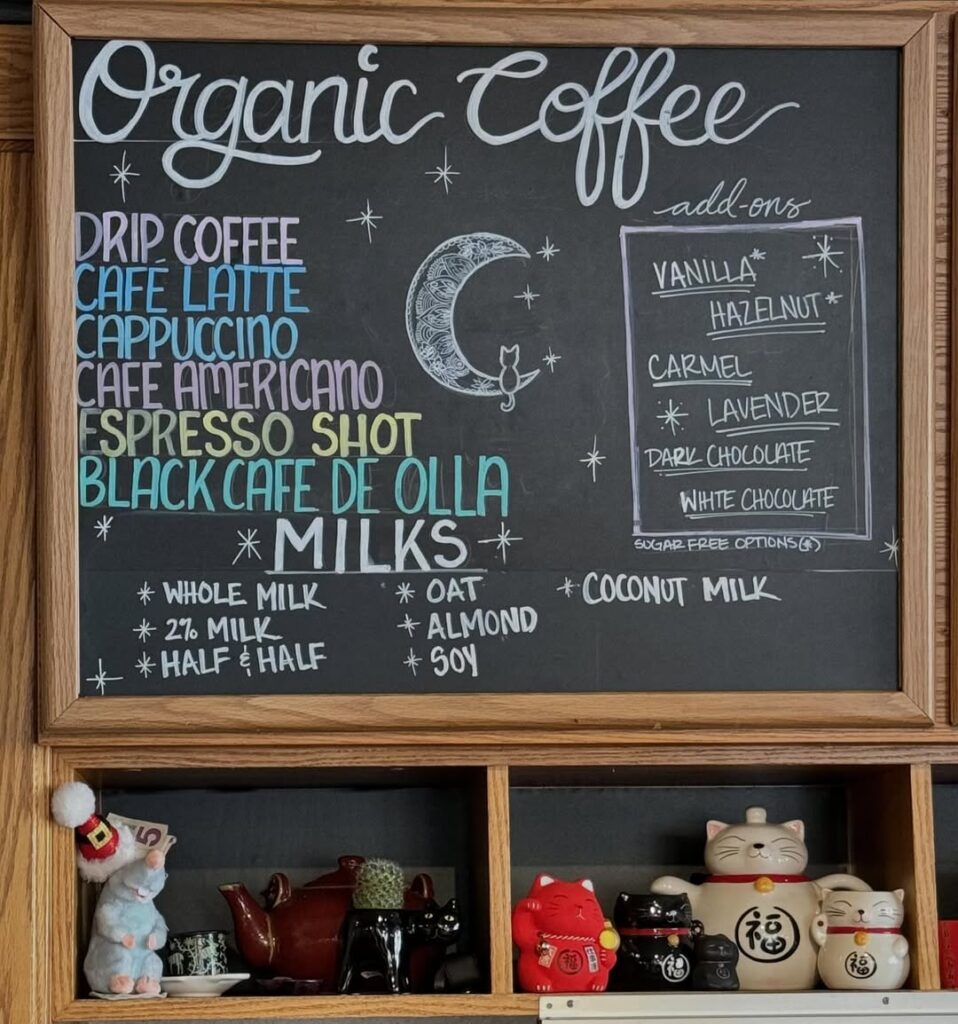 Organic Coffee
add-ons
DRIP COFFEE
CAFÉ LATTE
CAPPUCCINO
CAFE AMERICANO
ESPRESSO SHOT
BLACK CAFE DE OLLA
VANILLA*
HAZELNUT*
CARMEL
LAVENDER
DARK CHOCOLATE
WHITE CHOCOLATE
SUGAR FREE OPTIONS(*)
MILKS
* WHOLE MILK
* 2% MILK
* HALF & HALF
* OAT
* ALMOND
* SOY
* COCONUT MILK
5
福
福
福
福